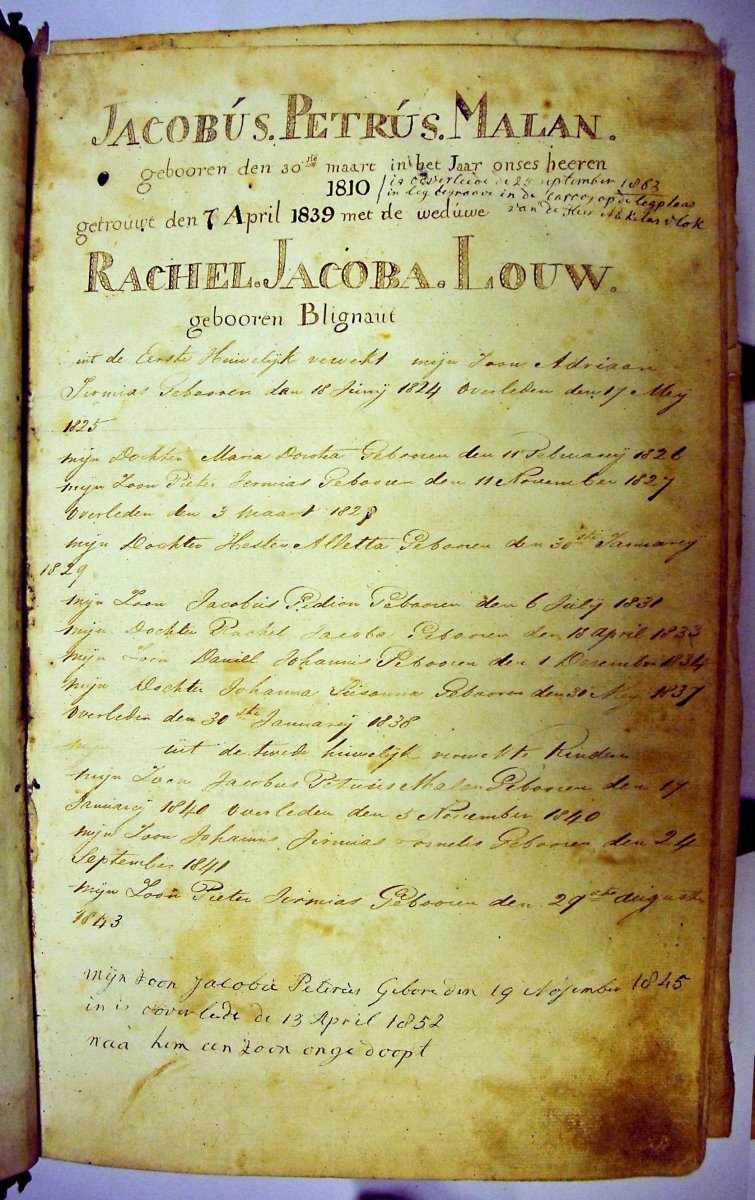 JACOBÚS. PETRÚS. MALAN.
gebooren den 30ste maart in het Jaar onses heeren
1810 / is ooverleide de 25 september 1863
in leg begraave in de op de legplaas
getroúwt den 7 April 1839 met de wedúwe van de Heer Vlok
RACHEL. JACOBA. LOUW.
gebooren Blignaut
uit de Eerste Huwelijk verwekt mijn Zoon Adriaan
Jirmias Gebooren den 18 Junij 1824 Overleden den 17 Meij
1825
mijn Dochter Maria Dorotha Gebooren den 11 Februarij 1826
mijn Zoon Pieter Jermias Gebooren den 11 November 1827
Overleden den 3 maart 1828
mijn Dochter Hester Alletta Gebooren den 30ste Januarij
1829
mijn Zoon Jacobus Gebooren den 6 Julij 1831
mijn Dochter Rachel Jacoba Gebooren den 18 April 1833
mijn Zoon Daniel Johannis Gebooren den 1 December 1834
mijn Dochter Johanna Susanna Gebooren den 30 Meij 1837
Overleden den 30ste Januarij 1838
uit de twede huwelijk verwekte Kinders
mijn Zoon Jacobus Petrus Malan Gebooren den 17
Januarij 1840 Overleden den 5 November 1840
mijn Zoon Johannis Jirmias Cornelis Gebooren den 24
September 1841
mijn Zoon Pieter Jirmias Gebooren den 29ste augustus
1843
mijn zoon Jacobús Petrús Gebore den 19 November 1845
in is ooverlede de 13 April 1852
naa hem een zoon ongedoopt